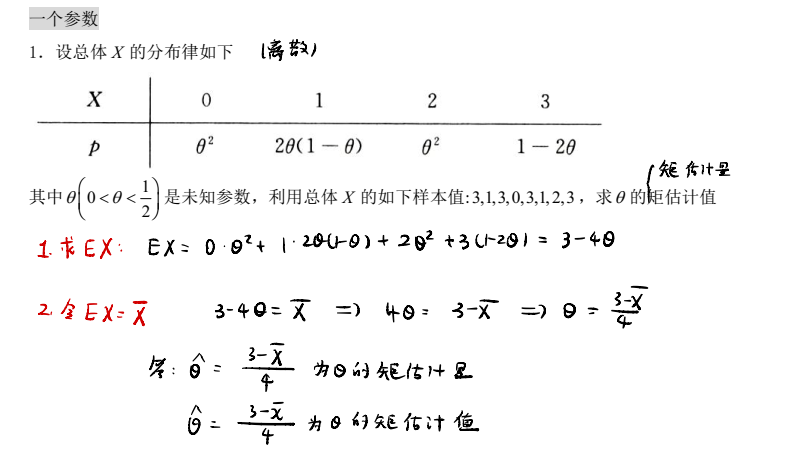 一个参数
1. 设总体 X 的分布律如下 (离散)
X 0 1 2 3
p θ² 2θ(1－θ) θ² 1－2θ
矩估计量
其中θ(0<θ<1/2)是未知参数，利用总体 X 的如下样本值:3,1,3,0,3,1,2,3，求θ的矩估计值
1. 求EX: EX = 0·θ² + 1·2θ(1-θ) + 2θ² + 3(1-2θ) = 3-4θ
2. 令EX=X̄ 3-4θ = X̄ => 4θ = 3-X̄ => θ = (3-X̄)/4
答: θ̂ = (3-X̄)/4 为θ的矩估计量
θ̂ = (3-x̄)/4 为θ的矩估计值